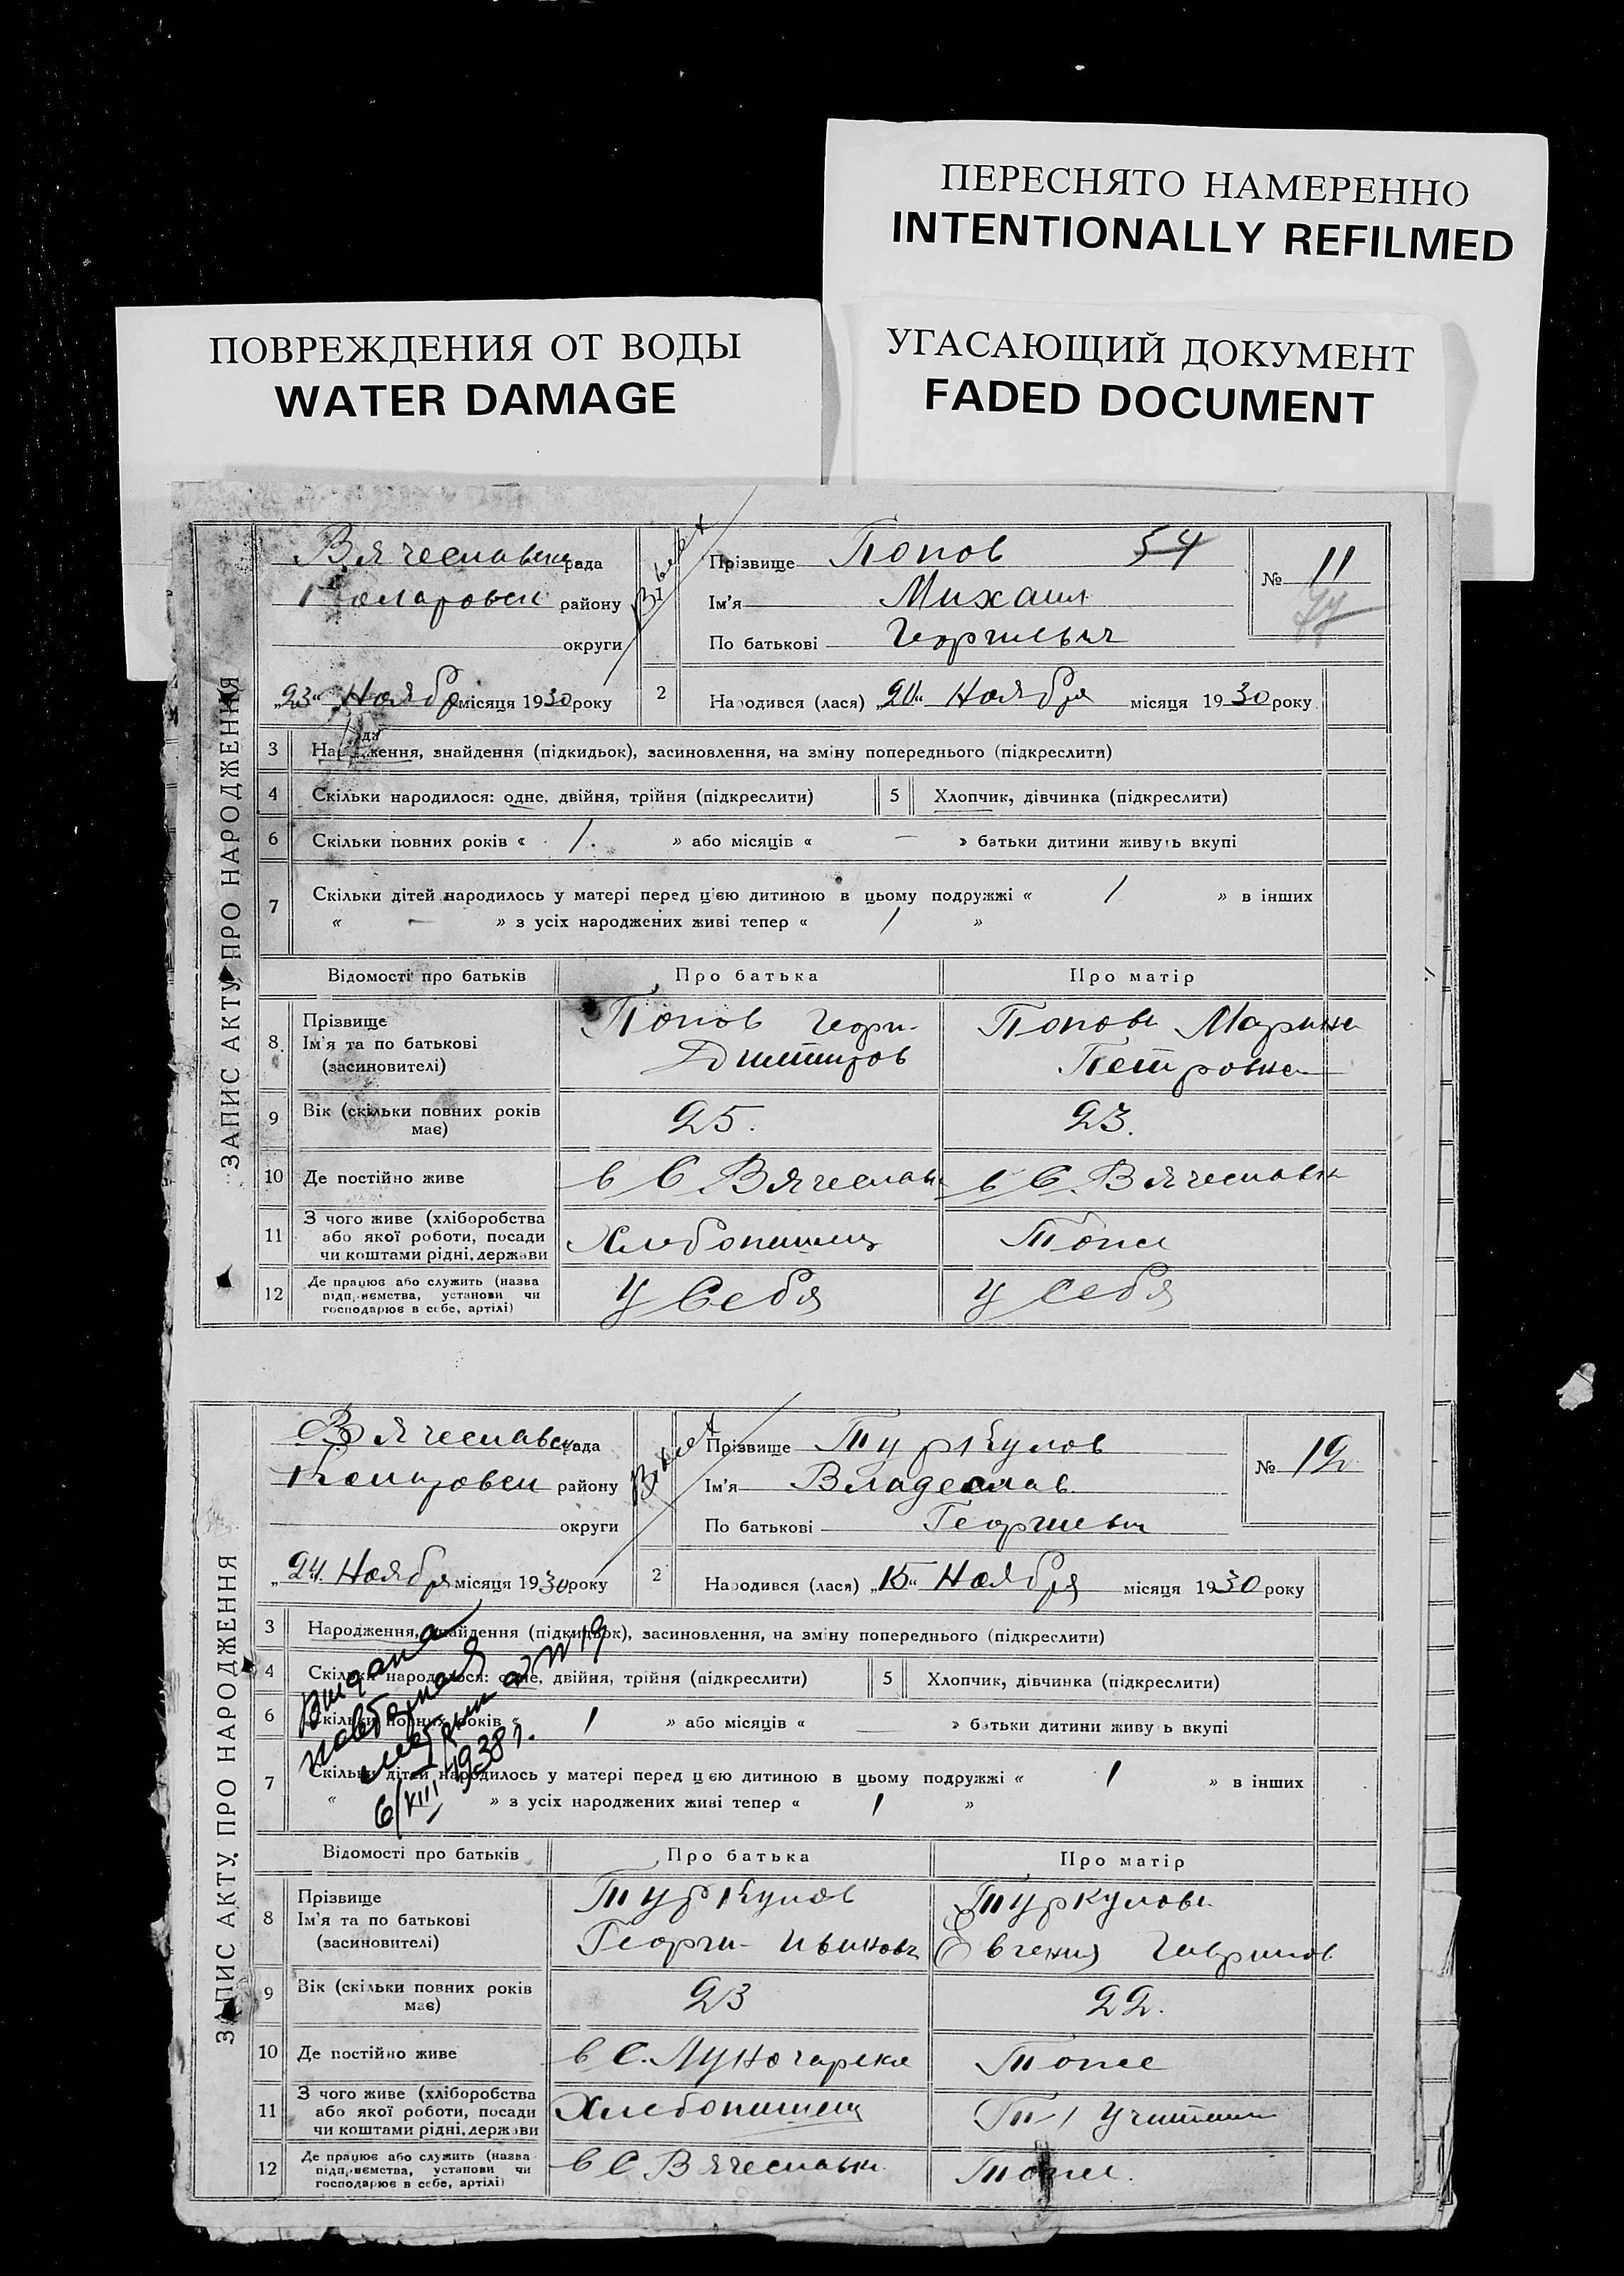 ПЕРЕСНЯТО НАМЕРЕННО
INTENTIONALLY REFILMED
ПОВРЕЖДЕНИЯ ОТ ВОДЫ
WATER DAMAGE
УГАСАЮЩИЙ ДОКУМЕНТ
FADED DOCUMENT
ЗАПИС АКТУ ПРО НАРОДЖЕННЯ
Вячеславск рада
району
округи
„23“ Ноября місяця 1930 року
Прізвище Попов 54
Ім'я Михаил
По батькові Георгиевич
№ 11
2 Народився (лася) „20“ Ноября місяця 1930 року
3 Народження, знайдення (підкидьок), засиновлення, на зміну попереднього (підкреслити)
4 Скільки народилося: одне, двійня, трійня (підкреслити) 5 Хлопчик, дівчинка (підкреслити)
6 Скільки повних років « 1. » або місяців « — » батьки дитини живуть вкупі
7 Скільки дітей народилось у матері перед цією дитиною в цьому подружжі « 1 » в інших
« — » з усіх народжених живі тепер « 1 »
Відомості про батьків Про батька Про матір
8. Прізвище
Ім'я та по батькові
(засиновителі)
Попов Георг-
Дмитров
Попова Марина
Петровна
9 Вік (скільки повних років має) 25. 23.
10 Де постійно живе в С Вячеславк в С. Вячеславк
11 З чого живе (хліборобства
або якої роботи, посади
чи коштами рідні, держави
Хлебопашец Тоже
12 Де працює або служить (назва
підприємства, установи чи
господарює в себе, артілі)
у Себя у себя
ЗАПИС АКТУ ПРО НАРОДЖЕННЯ
Вячеславск рада
району
округи
„24. Ноября місяця 1930 року
Прізвище Туркулов
Ім'я Владеслав
По батькові Георгиевич
№ 12
2 Народився (лася) „15“ Ноября місяця 1930 року
3 Народження, знайдення (підкидьок), засиновлення, на зміну попереднього (підкреслити)
4 Скільки народилося: одне, двійня, трійня (підкреслити) 5 Хлопчик, дівчинка (підкреслити)
6 Скільки повних років « 1 » або місяців « — » батьки дитини живуть вкупі
7 Скільки дітей народилось у матері перед цією дитиною в цьому подружжі « 1 » в інших
« » з усіх народжених живі тепер « 1 »
№ 19
6/VIII 1938 г.
Відомості про батьків Про батька Про матір
8 Прізвище
Ім'я та по батькові
(засиновителі)
Туркулов
Георги- Иванович
Туркулова
Евгения Гаврилов
9 Вік (скільки повних років має) 23 22.
10 Де постійно живе в С. Луночарска Тоже
11 З чого живе (хліборобства
або якої роботи, посади
чи коштами рідні, держави
Хлебопашец
12 Де працює або служить (назва
підприємства, установи чи
господарює в себе, артілі)
в С Вячеславк Тоже.